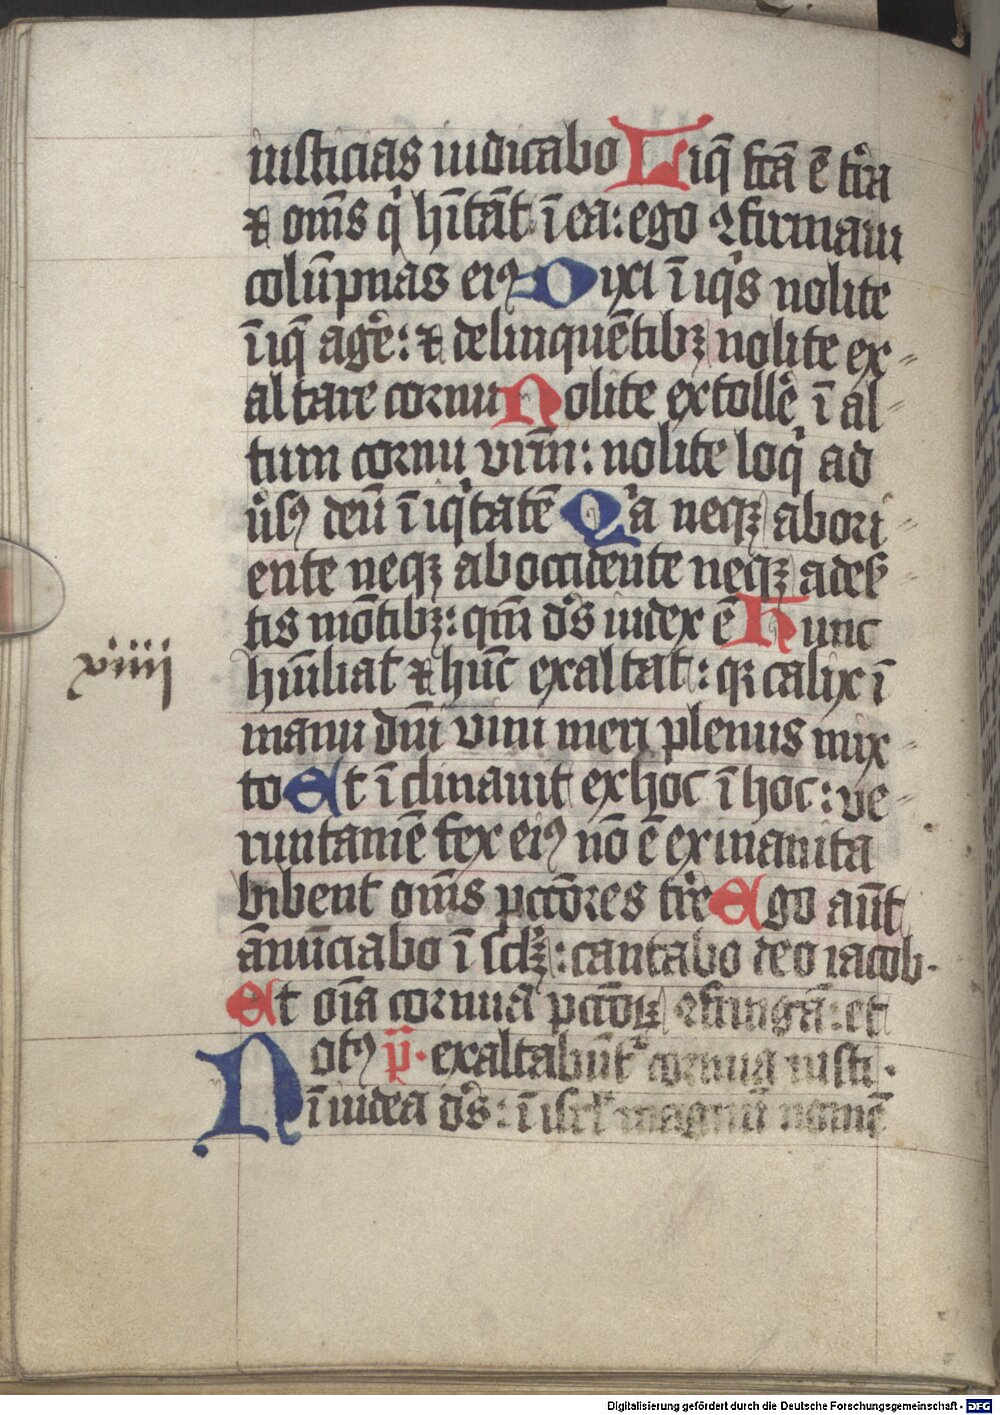 iusticias iudicabo Liq̄ fcā ē tr̄a
⁊ om̄s q̇ hītāt ī ea: ego ꝯfirmaui
colūpnas eiꝰ Dixi īiq̇s nolite
īiq̄ agē: ⁊ delinquētibꝫ nolite ex-
altare cornu Nolite extollē ī al-
tum cornu vrm̄: nolite loq̇ ad
ūsꝰ deū īiq̇tatē Qa neqꝫ abori-
ente neqꝫ aboccidente neqꝫ a des̄-
tis mōtibꝫ: qm̄ ds̄ iudex ē Hunc
viiii
humiliat ⁊ hūc exaltat: qꝛ calix ī
manu dn̄i vini meri plenus mix-
to Et īclinauit ex hoc ī hoc: ve-
runtamē fex eiꝰ nō ē exinanita
bibent om̄s pcc̄ores tr̄e Ego aūt
ānūciabo ī sclꝫ: cantabo deo iacob.
Et oīa cornua pcc̄oꝝ ꝯfringā: et
exaltabūt᷑ cornua iusti.
Notꝰ p̄.
ī iudea ds̄: ī isrl̄ magnū nomē
Digitalisierung gefördert durch die Deutsche Forschungsgemeinschaft - DFG